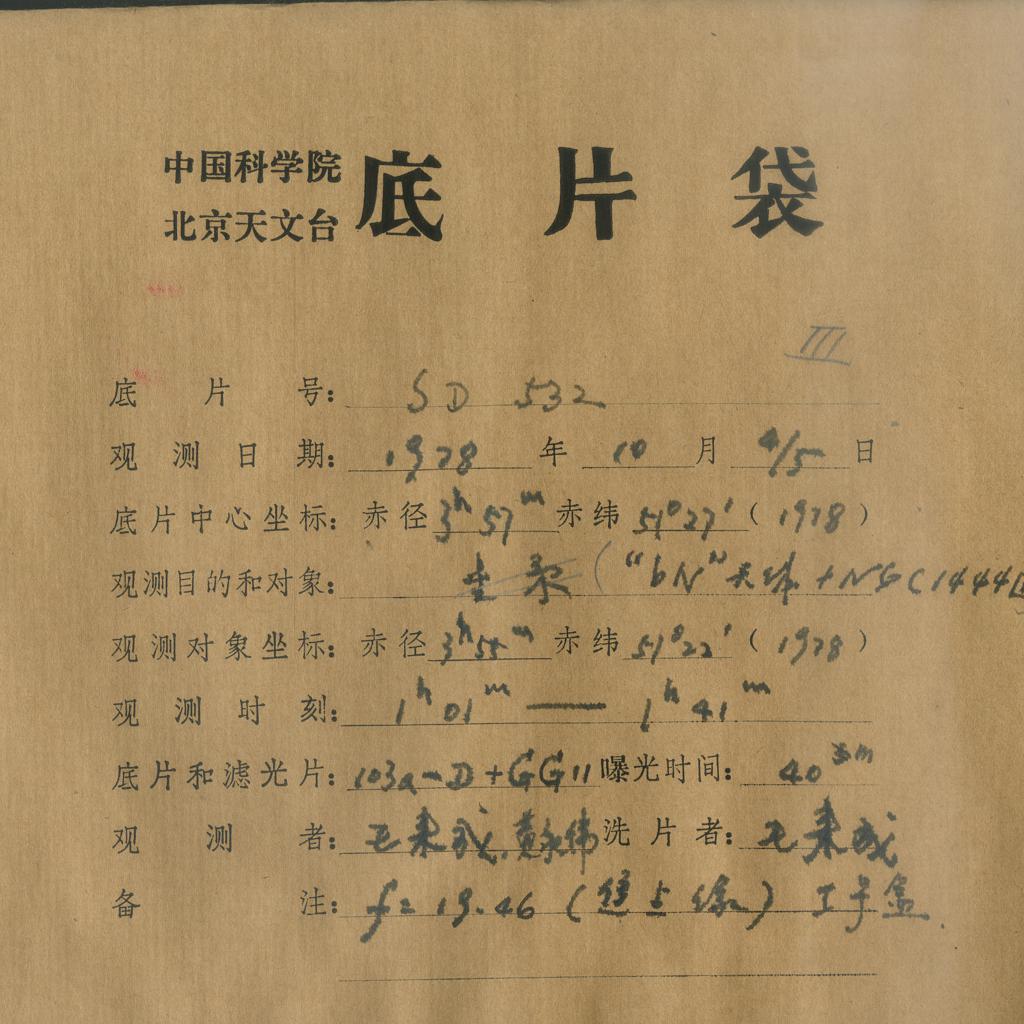 中国科学院
北京天文台
底片袋
III
底片号: SD 532
观测日期: 1978 年 10 月 4/5 日
底片中心坐标: 赤径 3h 57m 赤纬 51°27′ (1978)
观测目的和对象: ("bN"天体+NGC1444
观测对象坐标: 赤径 3h 55m 赤纬 51°22′ (1978)
观测时刻: 1h 01m — 1h 41m
底片和滤光片: 103a-D+GG11 曝光时间: 40m
观测者: 洗片者:
备注: f=19.46